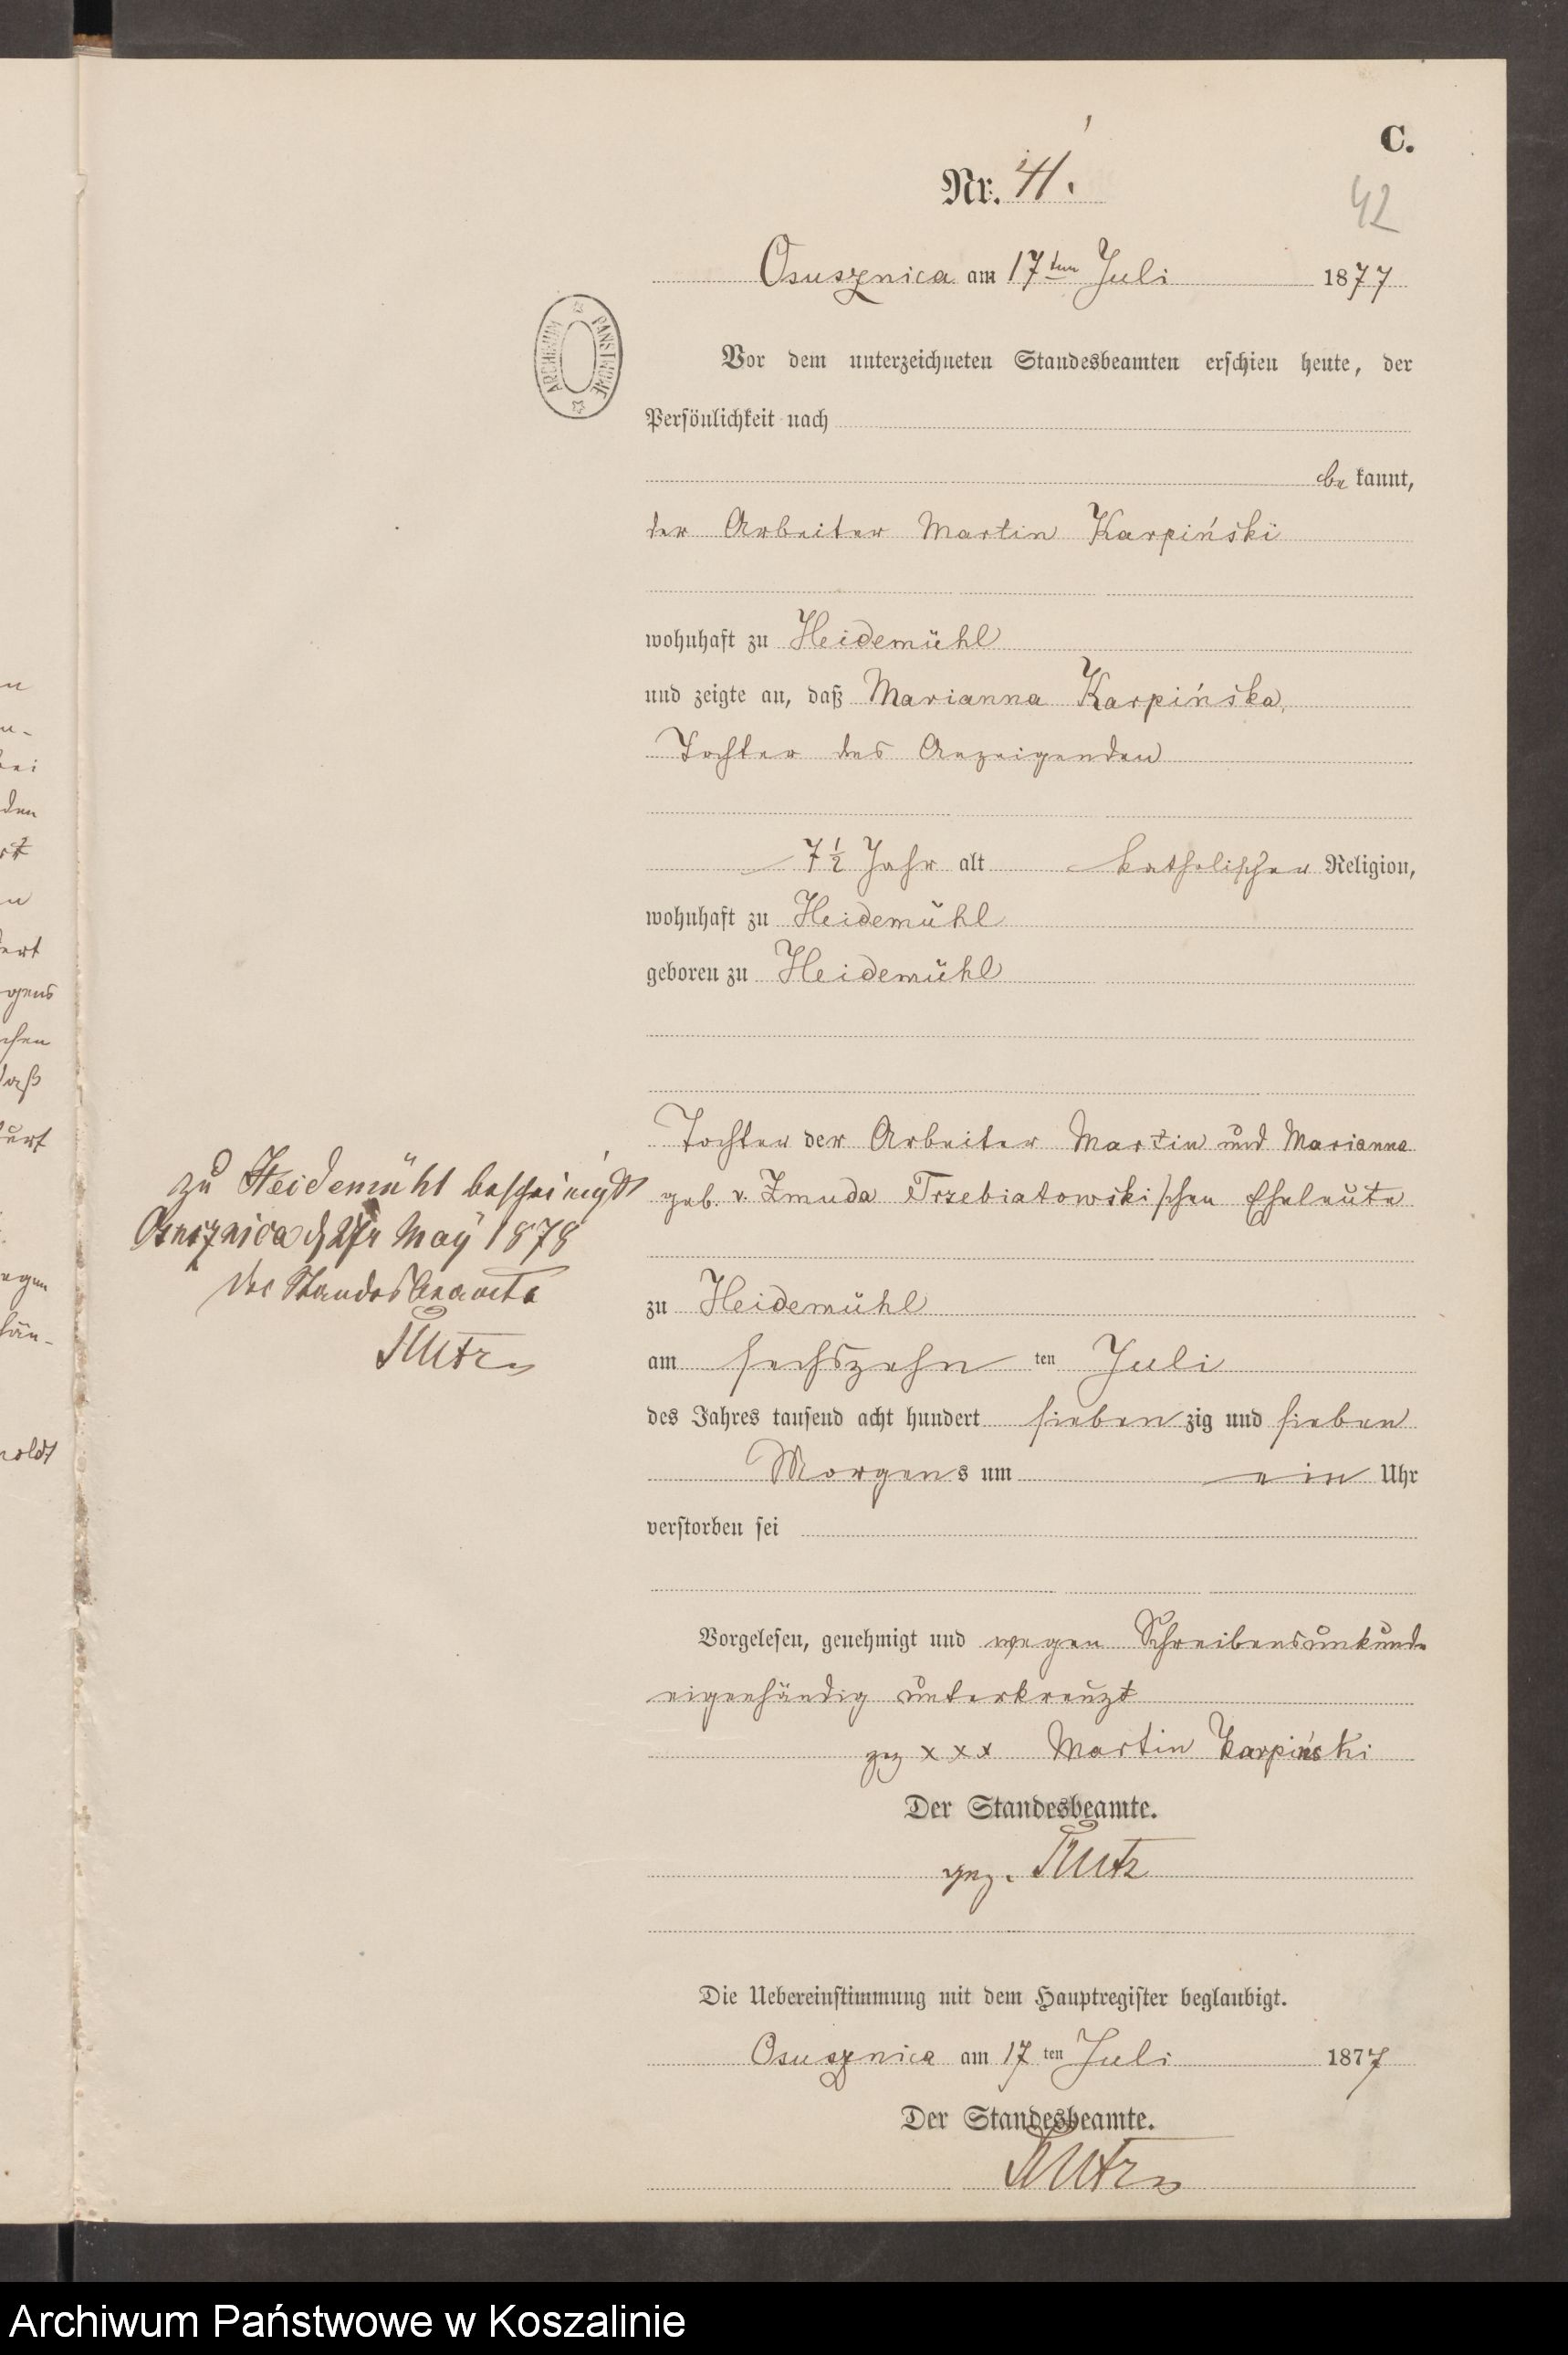 C.
Nr. 41.
42
Osusznica am 17ten Juli 1877
ARCHIWUM PAŃSTWOWE
Vor dem unterzeichneten Standesbeamten erschien heute, der
Persönlichkeit nach
be kannt,
der Arbeiter Martin Karpiński
wohnhaft zu Heidemühl
und zeigte an, daß Marianna Karpińska,
Tochter des Anzeigenden
7½ Jahr alt katholischer Religion,
wohnhaft zu Heidemühl
geboren zu Heidemühl
Tochter der Arbeiter Martin und Marianna
geb. v. Zmuda Trzebiatowskischen Eheleute
zu Heidemühl
am sechszehn ten Juli
des Jahres tausend acht hundert sieben zig und sieben
Morgens um ein Uhr
verstorben sei
Vorgelesen, genehmigt und wegen Schreibensunkunde
eigenhändig unterkreuzt
gez xxx Martin Karpinski
Der Standesbeamte.
gez. Kutz
Die Uebereinstimmung mit dem Hauptregister beglaubigt.
Osusznica am 17 ten Juli 1877
Der Standesbeamte.
zu Heidemühl bescheinigt
Osusznica May 1878
Der Standesbeamte
Archiwum Państwowe w Koszalinie